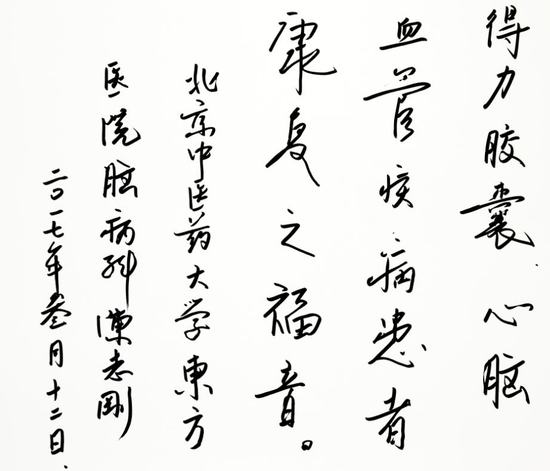 得力胶囊心脑
血管疾病患者
康复之福音。
北京中医药大学東方
医院脑病科陈志刚
二〇一七年叁月十二日.